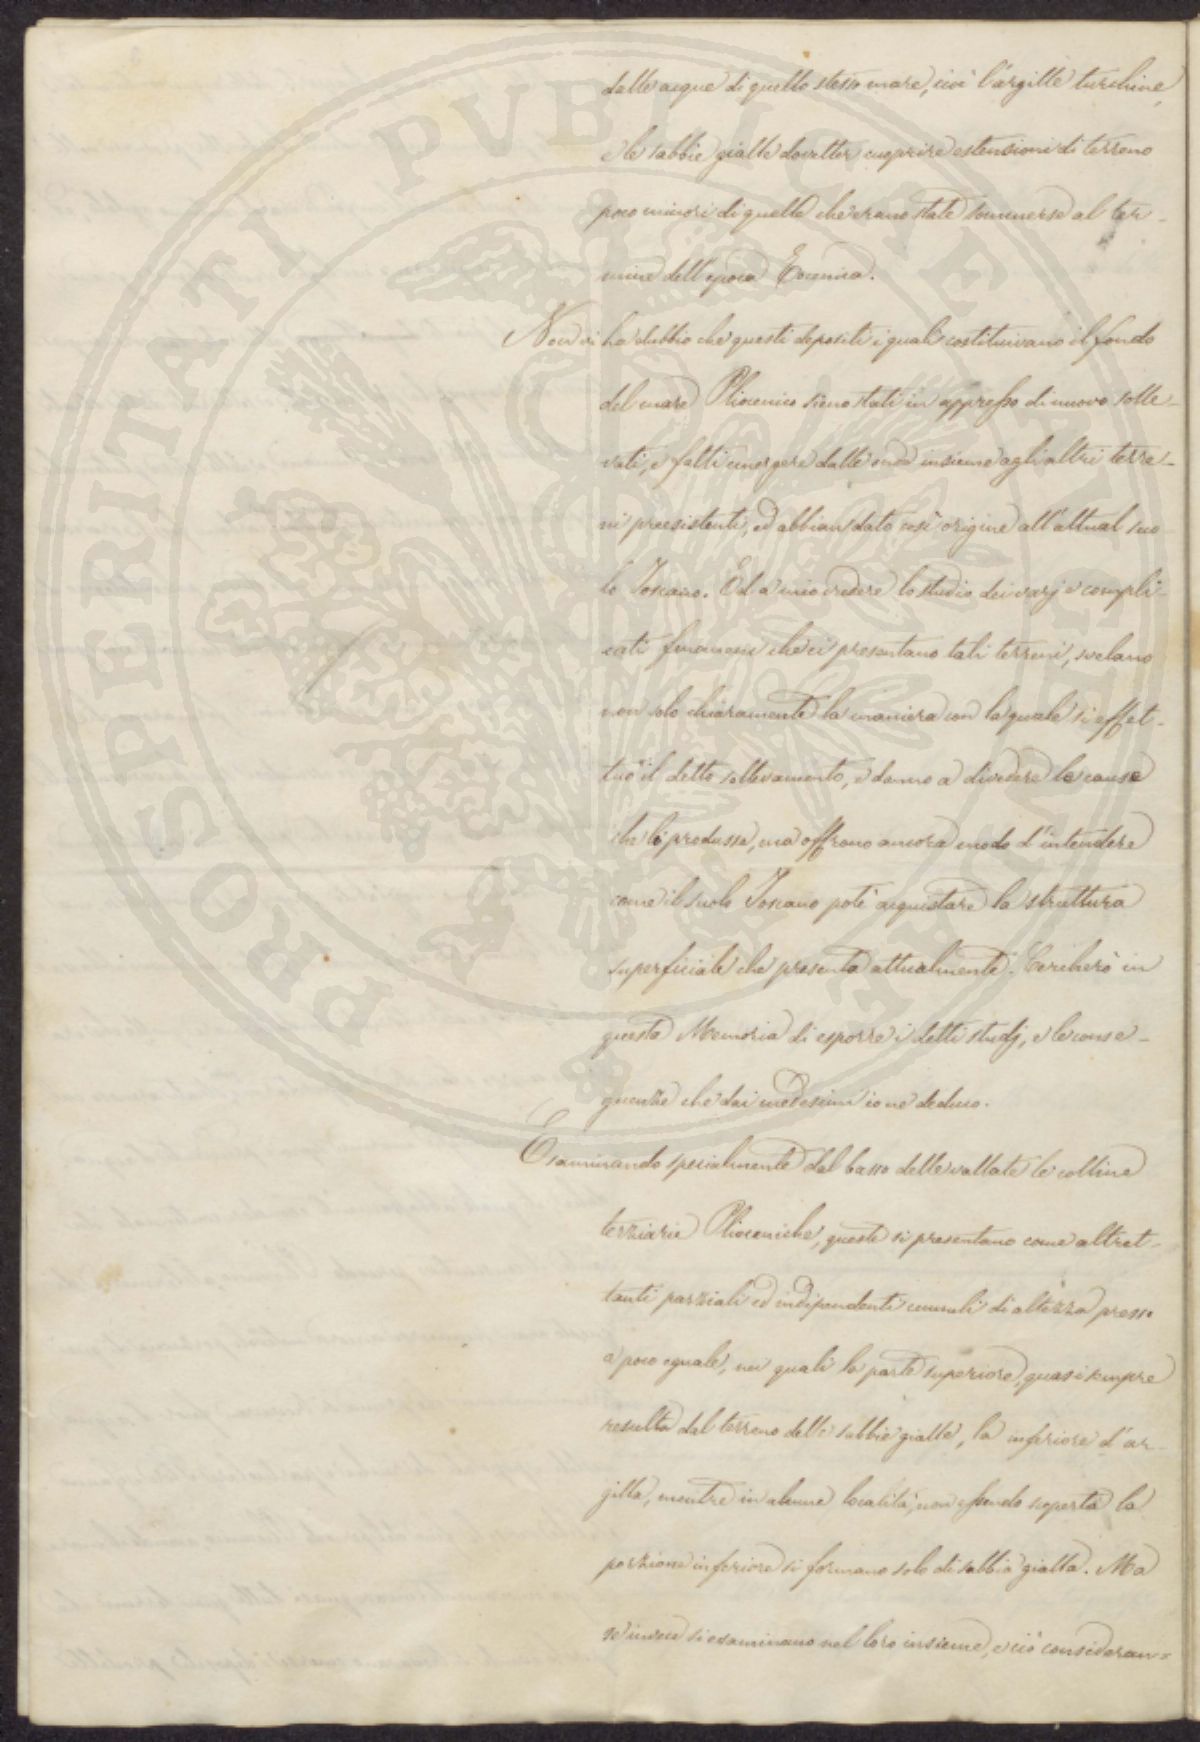 dalle acque di quello stesso mare, cioè l'argille turchine,
e le sabbie gialle dovetter cuoprire estensioni di terreno
poco minori di quelle che erano state sommerse al ter-
mine dell'epoca Eocenica.
Non vi ha dubbio che questi depositi i quali costituivano il fondo
del mare Pliocenico sieno stati in appresso di nuovo solle-
vati, e fatti emergere dalle onde insieme agli altri terre-
ni preesistenti, ed abbian dato così origine all'attual suo-
lo Toscano. Ed a mio credere lo studio dei varj e compli-
cati fenomeni che ci presentano tali terreni, svelano
non solo chiaramente la maniera con la quale si effet-
tuò il detto sollevamento, e danno a divedere le cause
che lo produsse, ma offrono ancora modo d'intendere
come il suolo Toscano potè acquistare la struttura
superficiale che presenta attualmente. Cercherò in
questa Memoria di esporre i detti studj, e le conse-
guenze che dai medesimi io ne deduco.
Esaminando specialmente dal basso delle vallate le colline
terziarie Plioceniche, queste si presentano come altret-
tanti parziali ed indipendenti cumuli di altezza presso
a poco eguale, nei quali la parte superiore, quasi sempre
resulta dal terreno delle sabbie gialle, la inferiore d'ar-
gilla, mentre in alcune località, non essendo scoperta la
porzione inferiore si formano solo di sabbia gialla. Ma
se invece si esaminano nel loro insieme, e ciò consideran=
PROSPERITATI PVBLICAE AVGENDAE